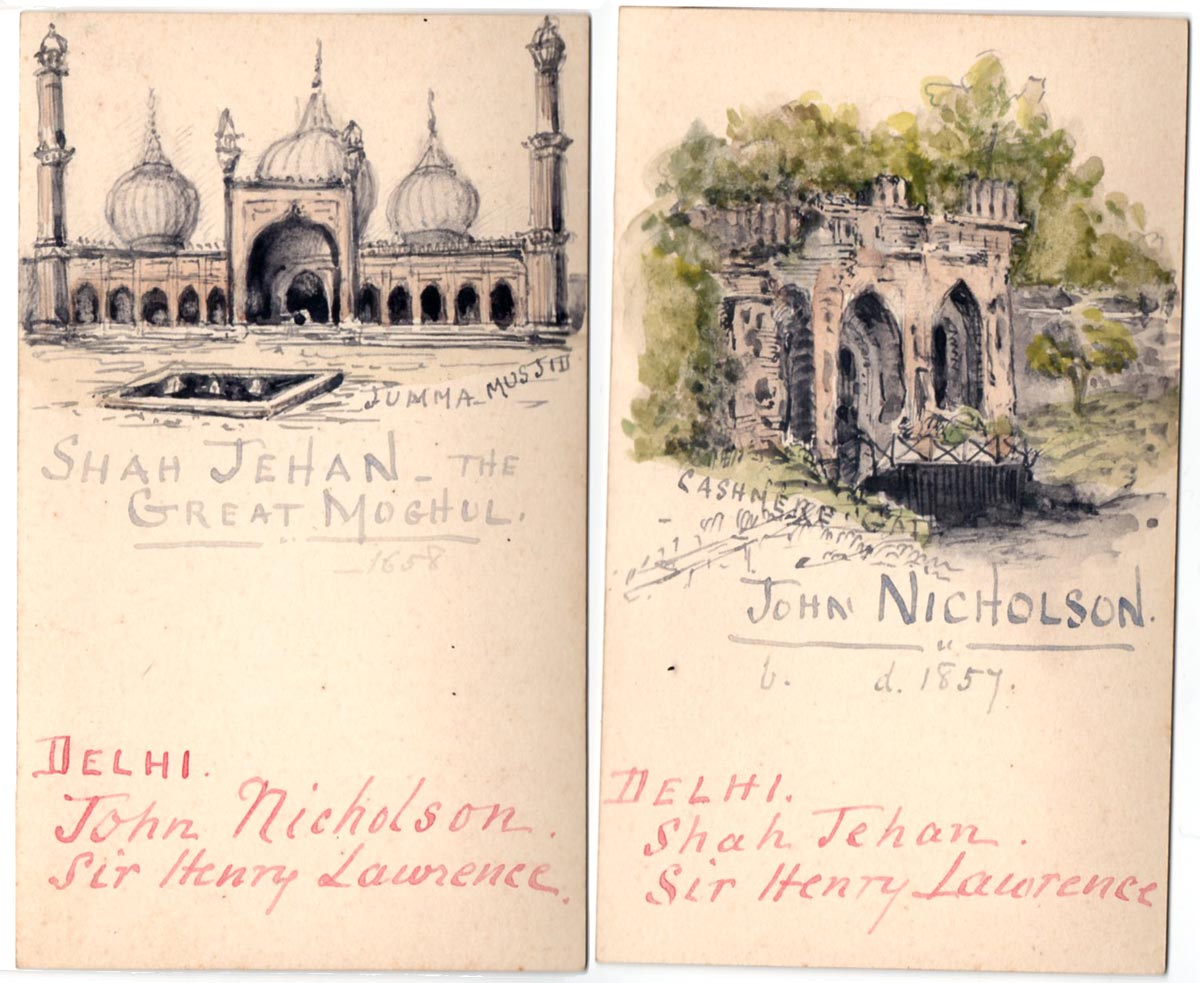 JUMMA-MUSJID
SHAH JEHAN - THE
GREAT MOGHUL.
-1658
DELHI.
John Nicholson.
Sir Henry Lawrence.
CASHMERE GAT
JOHN NICHOLSON.
b. d. 1857.
DELHI.
Shah Jehan.
Sir Henry Lawrence